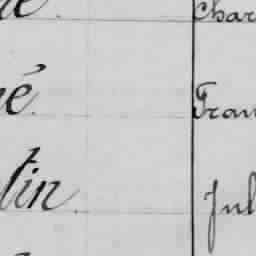 Char
é.
Fran
tin.
Jul